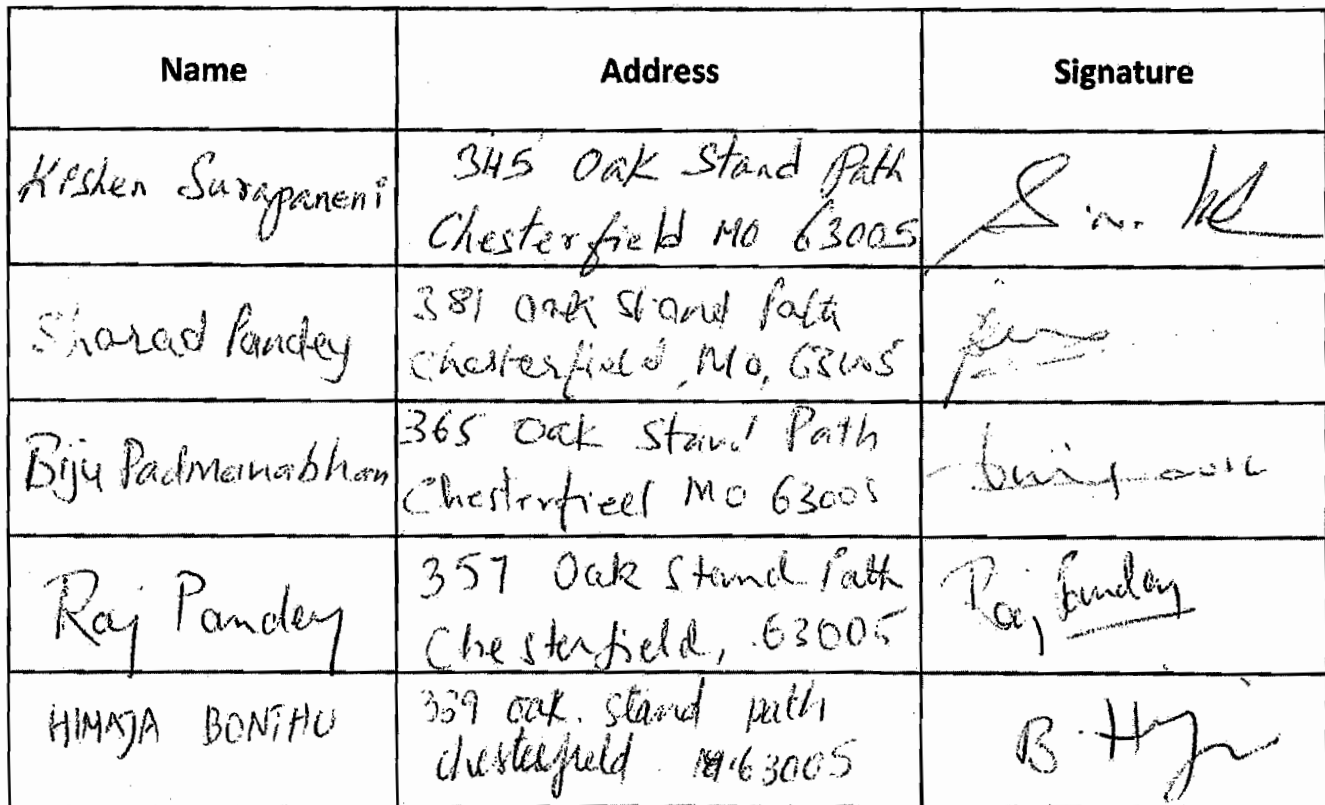 Name Address Signature
Kishen Surapaneni
345 Oak Stand Path
Chesterfield MO 63005
Sharad Pandey
381 Oak Stand Path
Chesterfield, Mo, 63005
Biju Padmanabhan
365 Oak Stand Path
Chesterfieel MO 63005
Raj Pandey
357 Oak Stand Path
Chesterfield, 63005
Raj Pandey
HIMAJA BONTHU
339 oak. stand path
chesterfield 63005
B. H